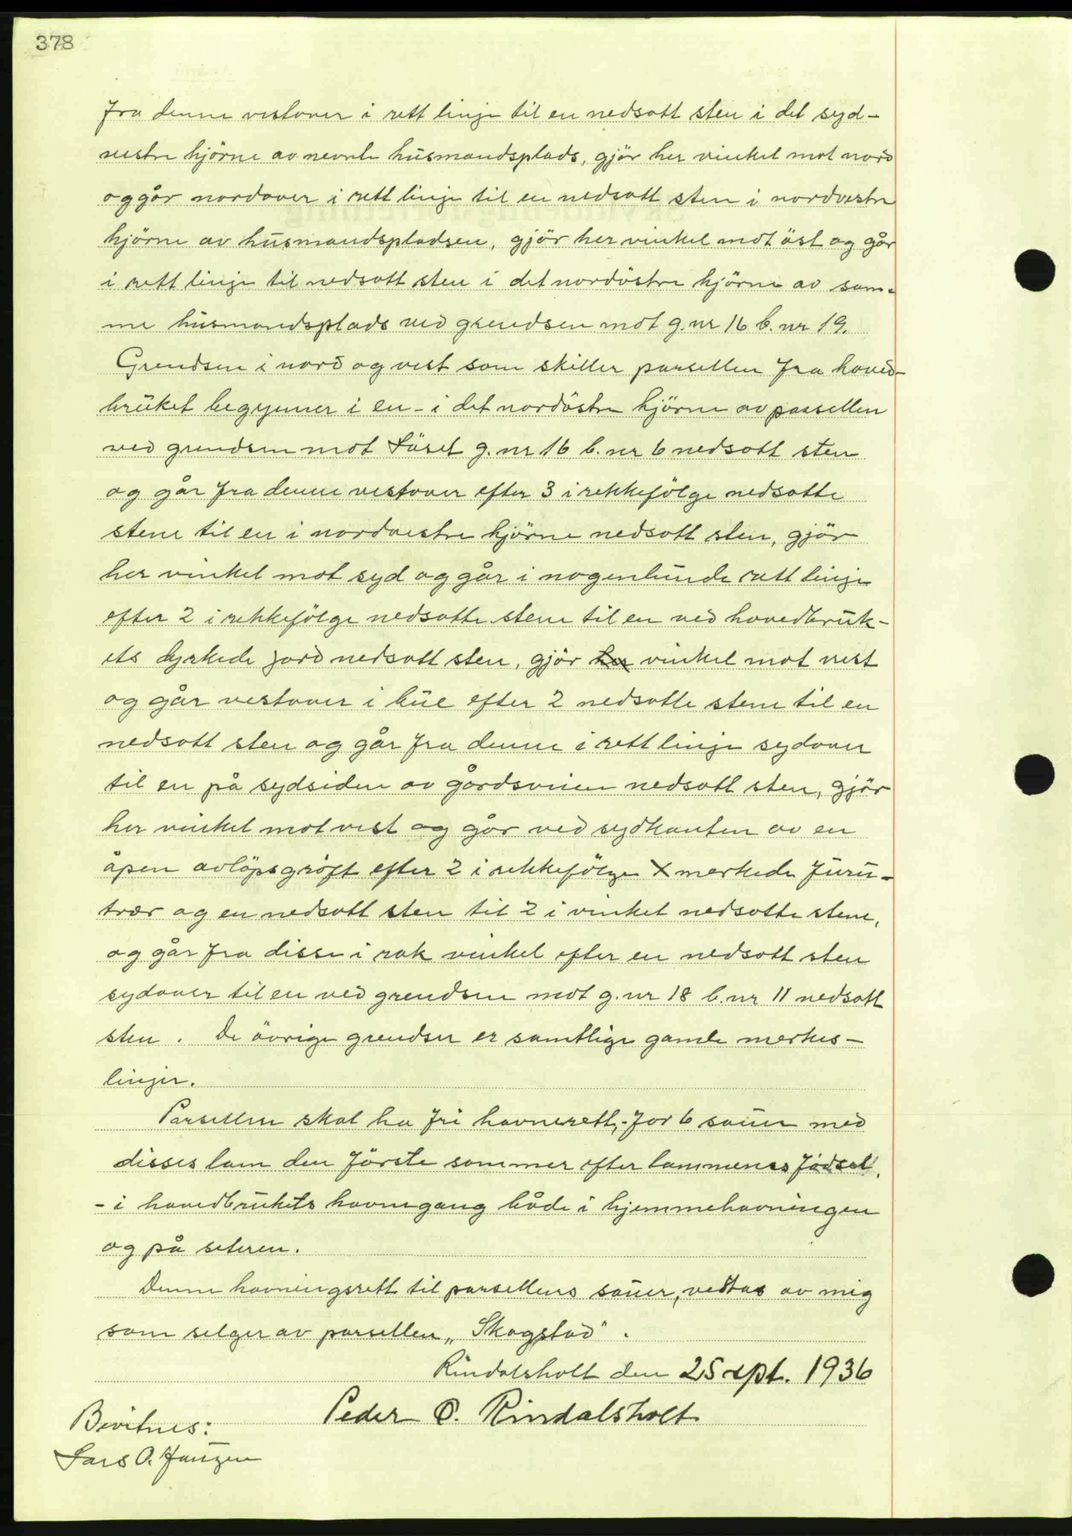 378
fra denne vestover i rett linje til en nedsatt sten i det syd-
vestre hjörne av nevnte husmandsplads, gjör her vinkel mot nord
og går nordover i rett linje til en nedsatt sten i nordvestre
hjörne av husmandspladsen, gjör her vinkel mot öst og går
i rett linje til nedsatt sten i det nordöstre hjörne av sam-
me husmandsplads ved grendsen mot g.nr 16 b.nr 19.
Grendsen i nord og vest som skiller parsellen fra hoved-
brüket begynner i en - i det nordöstre hjörne av parsellen
ved grendsen mot g.nr 16 b.nr 6 nedsatt sten
og går fra denne vestover efter 3 i rekkefölge nedsatte
stene til en i nordvestre hjörne nedsatt sten, gjör
her vinkel mot syd og går i nogenlunde rett linje
efter 2 i rekkefölge nedsatte stene til en ved hovedbrük-
ets dyrkede jord nedsatt sten, gjör her vinkel mot vest
og går vestover i büe efter 2 nedsatte stene til en
nedsatt sten og går fra denne i rett linje sydover
til en på sydsiden av gårdsveien nedsatt sten, gjör
her vinkel mot vest og går ved sydkanten av en
åpen avlöpsgröft efter 2 i rekkefölge X merkede füru-
trær og en nedsatt sten til 2 i vinkel nedsatte stene,
og går fra disse i rak vinkel efter en nedsatt sten
sydover til en ved grendsen mot g.nr 18 b.nr 11 nedsatt
sten. De övrige grendser er samtlige gamle merkes-
linjer.
Parsellen skal ha fri havnerett, - for 6 sauer med
disses lam den förste sommer efter lammenes födsel,
- i hovedbrükets havnegang både i hjemmehavningen
og på seteren.
Denne havningsrett til parsellens sauer, vedtas av mig
som selger av parsellen „Skogstad".
Rindalsholt den 25 sept. 1936
Peder O. Rindalsholt
Bevitnes:
Lars O.